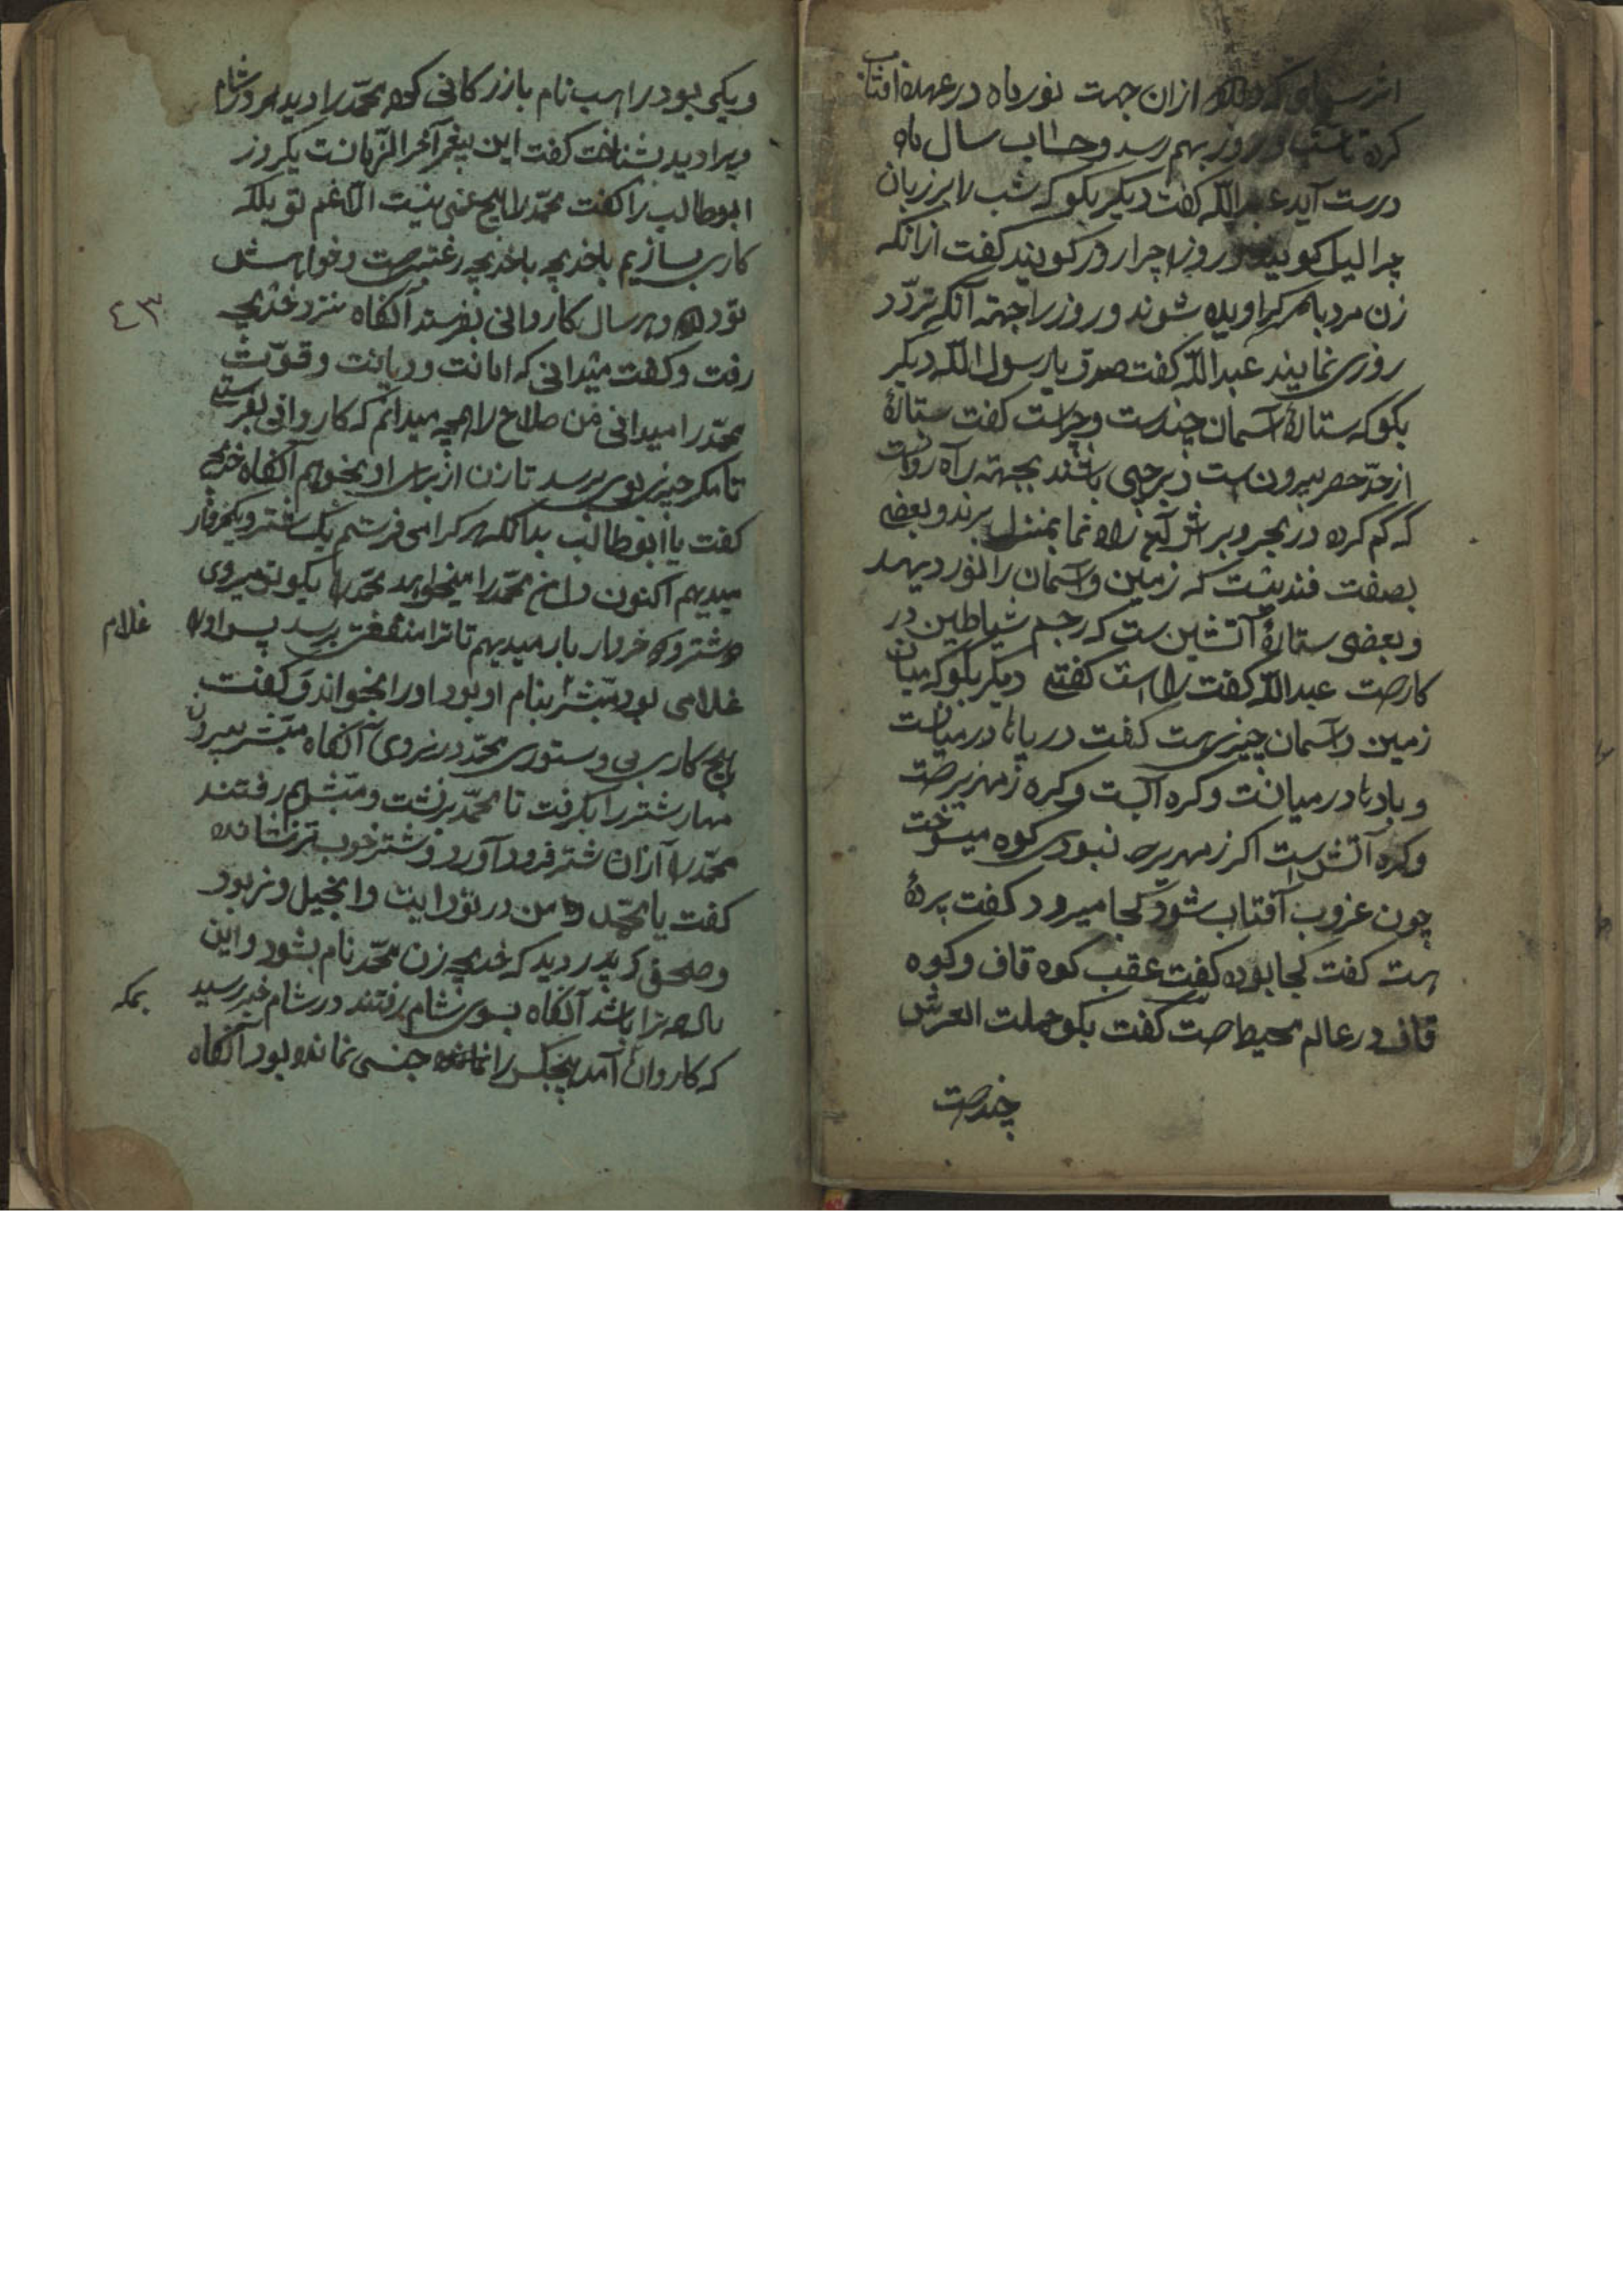 از آن جهت نور ماه در عهدهٔ آفتاب
کرد تا شب و روز بهم رسد و حساب سال ماه
درست آید عبدالله کفت دیکر بکو که شب را بر زبان
چرا لیل کویند و روز را چرا روز کویند کفت ازانکه
زن مرد باهم کراویده شوند و روز را جهته آنکه تردّد
روزی نمایند عبدالله کفت صدق یا رسول الله دیکر
بکو که ستارهٔ آسمان چندست و چراست کفت ستارهٔ
از حدّ حصر بیرونست و برخی باشند بجهته راه روانست
که کم کرده در بحر و بر راه نما بمنزل برند و بعضی
بصفت قندیلست که زمین و آسمان را نور دیهد
و بعضی ستارهٔ آتشین ست که رجم شیاطین در
کارست عبدالله کفت راست کفتی دیکر بکو که میان
زمین و آسمان چیزی هست کفت دریاها در میانست
و بادها در میانست و کره آبست و کره زمهریرست
و کره آتش است اکر زمهریر نبودی کوه میسوخت
چون غروب آفتاب شود کجا میرود کفت پردهٔ
هست کفت کجا بوده کفت عقب کوه قاف و کوه
قاف در عالم محیط است کفت بکو حملت العرش
چندست
و یکی بود راهب نام بازرکانی که محمّد را دید
ویرا دید بشناخت کفت این پیغمبر آخر الزّمانست یکروز
ابوطالب را کفت محمّد را هیچ غمی نیست الّا غم تو بلکه
کاری بسازیم باخدیجه باخدیجه رغبتی هست و خواهش
تو دارد و هر سال کاروانی بفرستد آنکاه نزد خدیجه
٤٣
رفت و کفت میدانی که امانت و دیانت و قوّت
محمّد را میدانی من صلاح را همچه میدانم که کاروانی بفرستی
تا مکر چیزی بوی برسد تا زن از برای او بخواهم آنکاه خدیجه
کفت یا ابوطالب بدانکه هر کرا می فرستم یک شتر و یکخروار
میدیهم اکنون محمّد را میخواهد محمّد را بکو تو میروی
دو شتر و دو خروار بار میدیهم تا ترا منفعت برسد پس او را
غلام
غلامی بود مبشّر بنام او بود او را بخواند و کفت
هیچ کاری بی دستوری محمّد در نروی آنکاه مبشّر بیرون
مهار شتر را بکرفت تا محمّد برنشت و مبشّر هم رفتند
محمّد را از آن شتر فرود آورد و شتر خوب تر نشانده
کفت یا محمّد من در تورایت و انجیل و زبور
و صحف پدر دید که خدیجه زن محمّد نام بشود و این
مال همه ترا باشد آنکاه بسوی شام رفتند در شام خبر رسید
بمکه
که کاروان آمد هیچکس را جنسی نمانده بود آنکاه